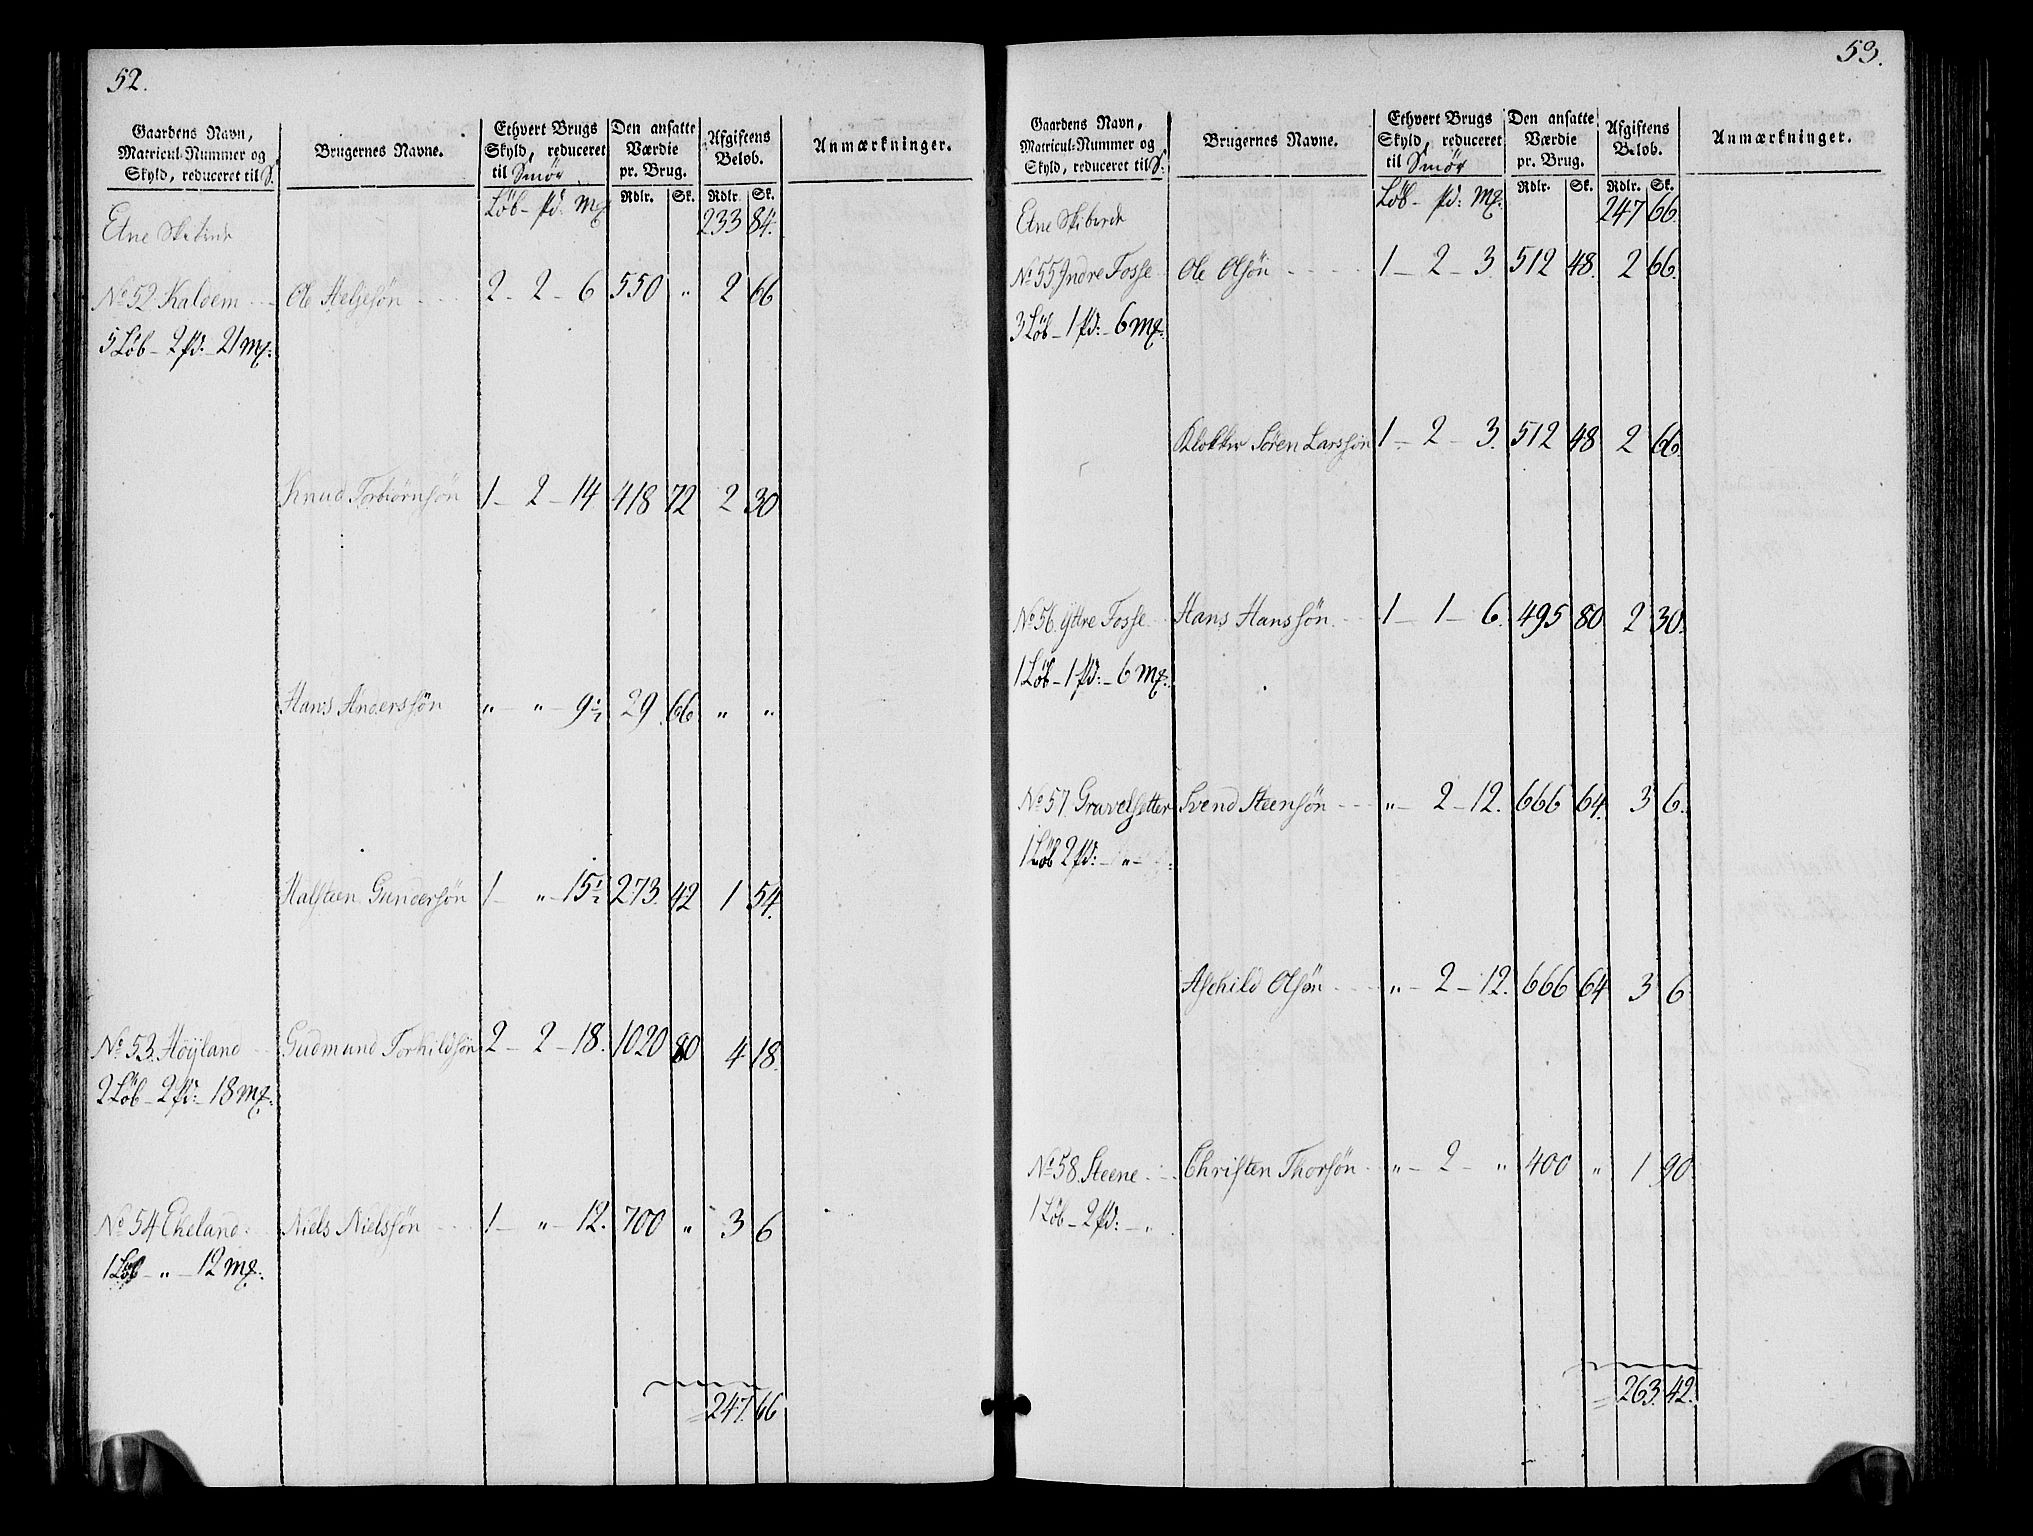 52.
Gaardens Navn, Matricul-Nummer og Skyld, reduceret til S.
Brugernes Navne.
Ethvert Brugs Skyld, reduceret til Smör
Den ansatte Værdie pr. Brug.
Afgiftens Beløb.
Anmærkninger.
Löb - pd: mg
Rdlr. Sk. Rdlr. Sk.
Etne Skibrede 233 84.
No 52 Kaldem Ole Helgesön 2 - 2 - 6 550 " 2 66
5 Löb - 2 pd: - 21 mg:
Knud Torbiörnsön 1 - 2 - 14 418 72 2 30
Hans Anderssön " - " - 9½ 29 66 " "
Halsteen Gundersön 1 - " - 15½ 273. 42 1 54.
No 53. Höyland Gudmund Torkildsön 2 - 2 - 18. 1020 80 4 18.
2 Löb - 2 pd: - 18 mg:
No 54 Ekeland Niels Nielssön 1 - " - 12. 700 " 3 6
1 Löb - " - 12 mg:
= 247. 66
53.
Gaardens Navn, Matricul-Nummer og Skyld, reduceret til S.
Brugernes Navne.
Ethvert Brugs Skyld, reduceret til Smör
Den ansatte Værdie pr. Brug.
Afgiftens Beløb.
Anmærkninger.
Löb - pd: mg.
Rdlr. Sk. Rdlr. Sk.
Etne Skibrede 247 66.
No 55. Indre Fosse Ole Olsön 1 - 2 - 3. 512 48. 2 66.
3 Löb - 1 pd: - 6 mg:
Klokker Sören Larssön 1 - 2 - 3. 512 48 2 66.
No 56. Yttre Fosse Hans Hanssön 1 - 1 - 6. 495 80 2 30.
1 Löb - 1 pd: - 6 mg:
No 57. Gravelsetter Svend Steensön " - 2 - 12. 666 64. 3 6.
1 Löb 2 pd: - " -
Aschild Olsön " - 2 - 12. 666 64 3 6
No 58. Steene Christen Thorsön " - 2 - " 400 " 1 90.
1 Löb - 2 pd: - "
= 263. 42.